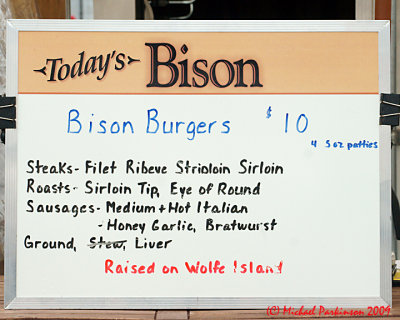 Today's Bison
Bison Burgers $10
4 5oz patties
Steaks- Filet Ribeye Striploin Sirloin
Roasts- Sirloin Tip, Eye of Round
Sausages- Medium + Hot Italian
- Honey Garlic, Bratwurst
Ground, Stew, Liver
Raised on Wolfe Island
(c) Michael Parkinson 2009